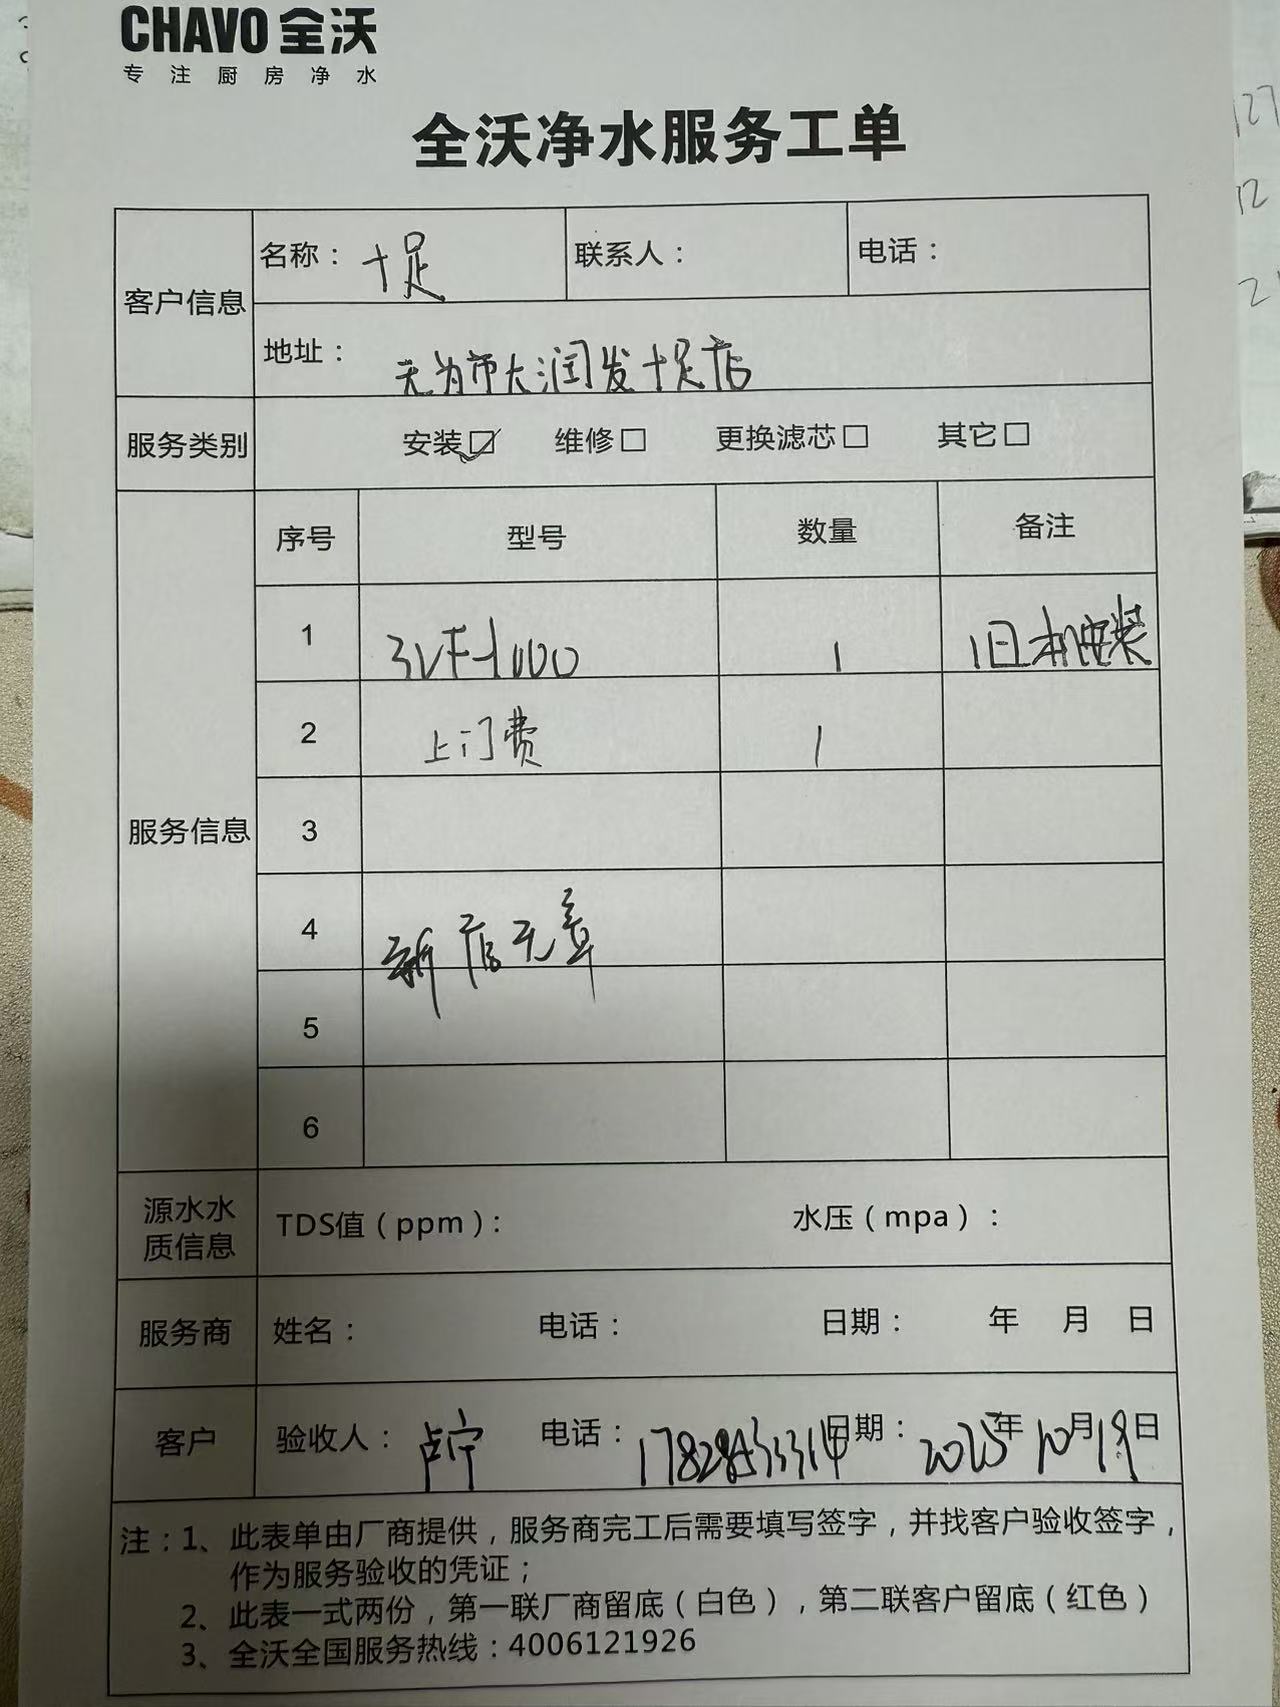 CHAVO 全沃
专注厨房净水
全沃净水服务工单
客户信息
名称： 十足
联系人：
电话：
地址： 无为市大润发十足店
服务类别
安装☑ 维修□ 更换滤芯□ 其它□
服务信息
序号 型号 数量 备注
1 3VF-1000 1 旧机安装
2 上门费 1
3
4 新店无章
5
6
源水水质信息
TDS值（ppm）： 水压（mpa）：
服务商 姓名： 电话： 日期： 年 月 日
客户 验收人： 卢宁 电话： 日期： 2025年10月19日
注：1、此表单由厂商提供，服务商完工后需要填写签字，并找客户验收签字，
作为服务验收的凭证；
2、此表一式两份，第一联厂商留底（白色），第二联客户留底（红色）
3、全沃全国服务热线：4006121926
127
12
2